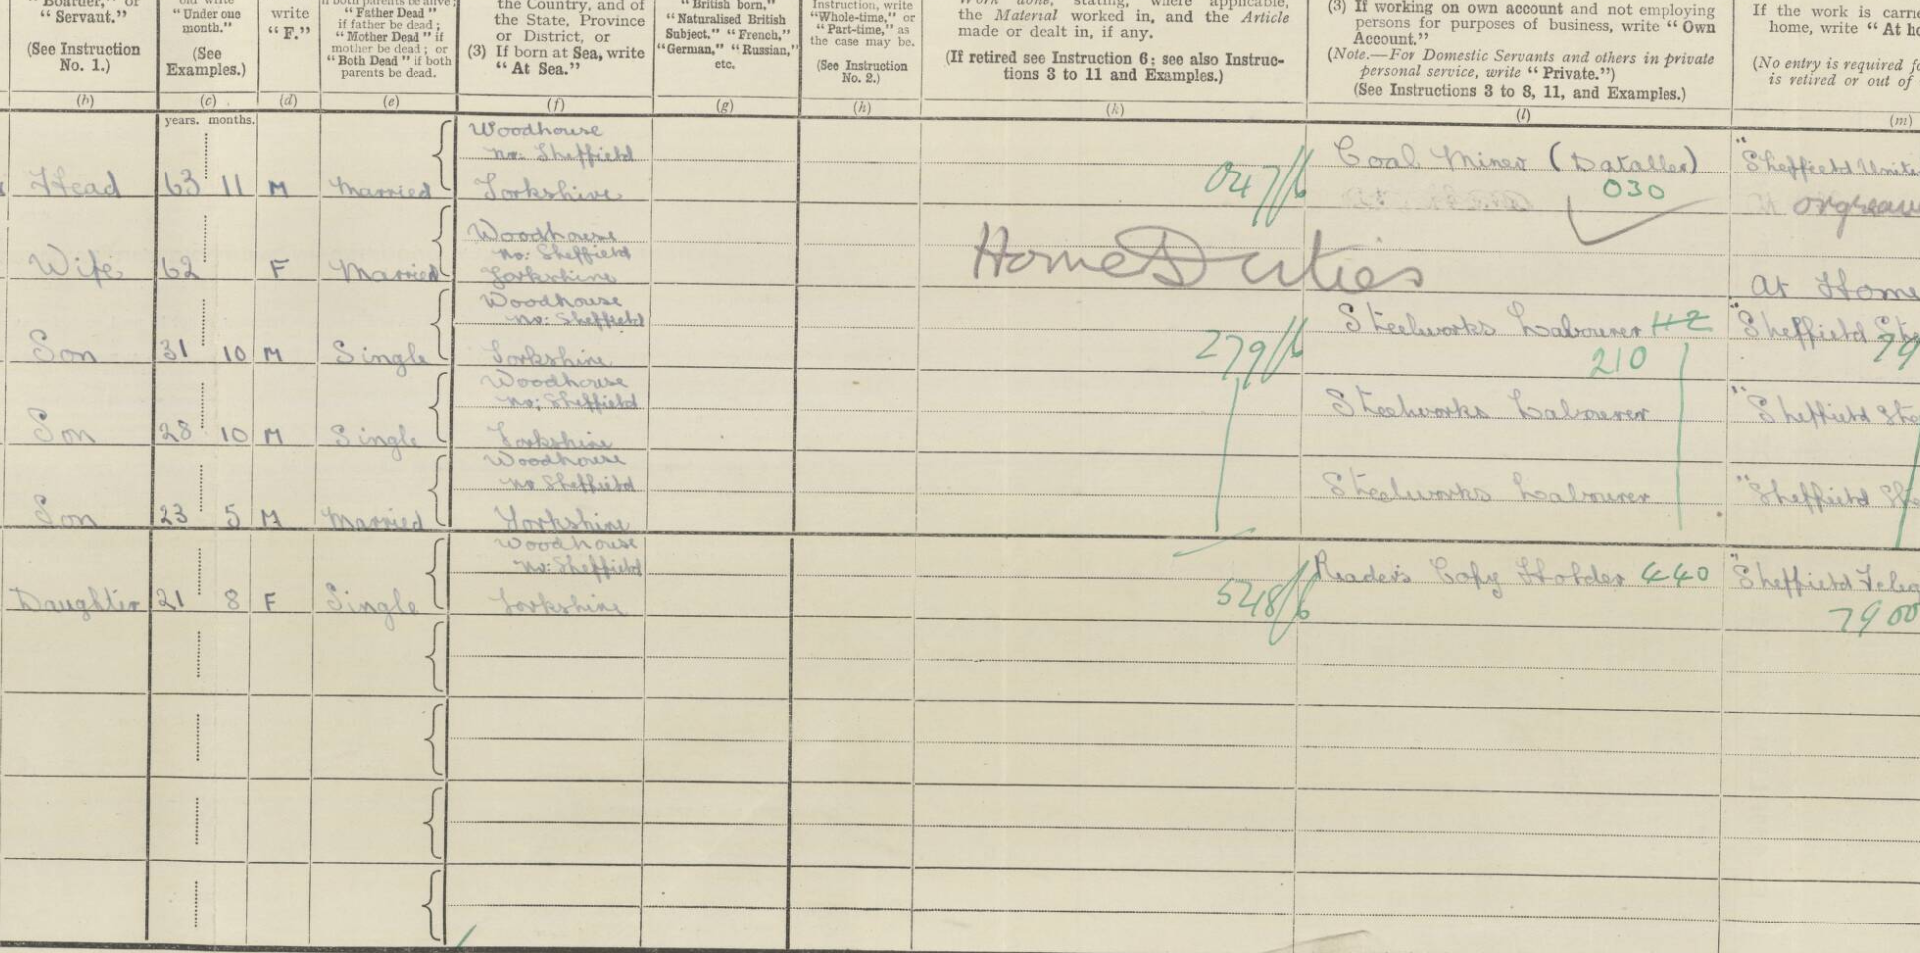 "Boarder," or
"Servant."
(See Instruction
No. 1.)
(b)
old write
"Under one
month."
(See
Examples.)
(c)
write
"F."
(d)
If both parents be alive;
"Father Dead"
if father be dead;
"Mother Dead" if
mother be dead; or
"Both Dead" if both
parents be dead.
(e)
the Country, and of
the State, Province
or District, or
(3) If born at Sea, write
"At Sea."
(f)
"British born,"
"Naturalised British
Subject." "French,"
"German," "Russian,"
etc.
(g)
Instruction, write
"Whole-time," or
"Part-time," as
the case may be.
(See Instruction
No. 2.)
(h)
Work done, stating, where applicable,
the Material worked in, and the Article
made or dealt in, if any.
(If retired see Instruction 6; see also Instruc-
tions 3 to 11 and Examples.)
(k)
(3) If working on own account and not employing
persons for purposes of business, write "Own
Account."
(Note.—For Domestic Servants and others in private
personal service, write "Private.")
(See Instructions 3 to 8, 11, and Examples.)
(l)
If the work is carri
home, write "At ho
(No entry is required fo
is retired or out of
(m)
years. months.
Head 63 11 M Married
Woodhouse
nr: Sheffield
Yorkshire
047/6
Coal Miner (Dataller)
030
"Sheffield Unite
Orgreave
Wife 62 F Married
Woodhouse
nr: Sheffield
Yorkshire
Home Duties
At Home
Son 31 10 M Single
Woodhouse
nr: Sheffield
Yorkshire
279/6
Steelworks Labourer
210
"Sheffield Ste
79
Son 28 10 M Single
Woodhouse
nr; Sheffield
Yorkshire
Steelworks Labourer
"Sheffield Ste
Son 23 5 M Married
Woodhouse
nr Sheffield
Yorkshire
Steelworks Labourer
"Sheffield Ste
Daughter 21 8 F Single
Woodhouse
nr: Sheffield
Yorkshire
548/6
Readers Copy Holder 440
"Sheffield Teleg
7900